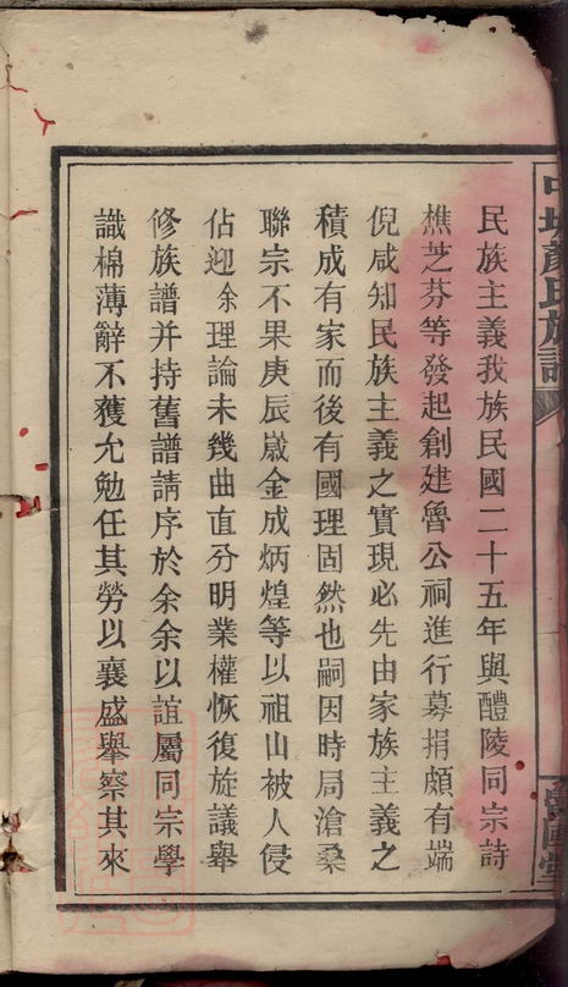 中埧顏氏族譜
魯國堂
民族主義我族民國二十五年與醴陵同宗詩
樵芝芬等發起創建魯公祠進行募捐頗有端
倪咸知民族主義之實現必先由家族主義之
積成有家而後有國理固然也嗣因時局滄桑
聯宗不果庚辰歲金成炳煌等以祖山被人侵
佔迎余理論未幾曲直分明業權恢復旋議舉
修族譜并持舊譜請序於余余以誼屬同宗學
識棉薄辭不獲允勉任其勞以襄盛舉察其來